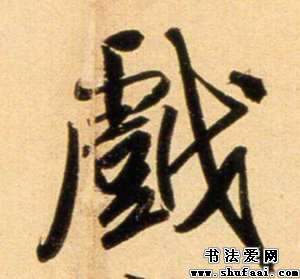 戯
书法爱网
www.shufaai.com